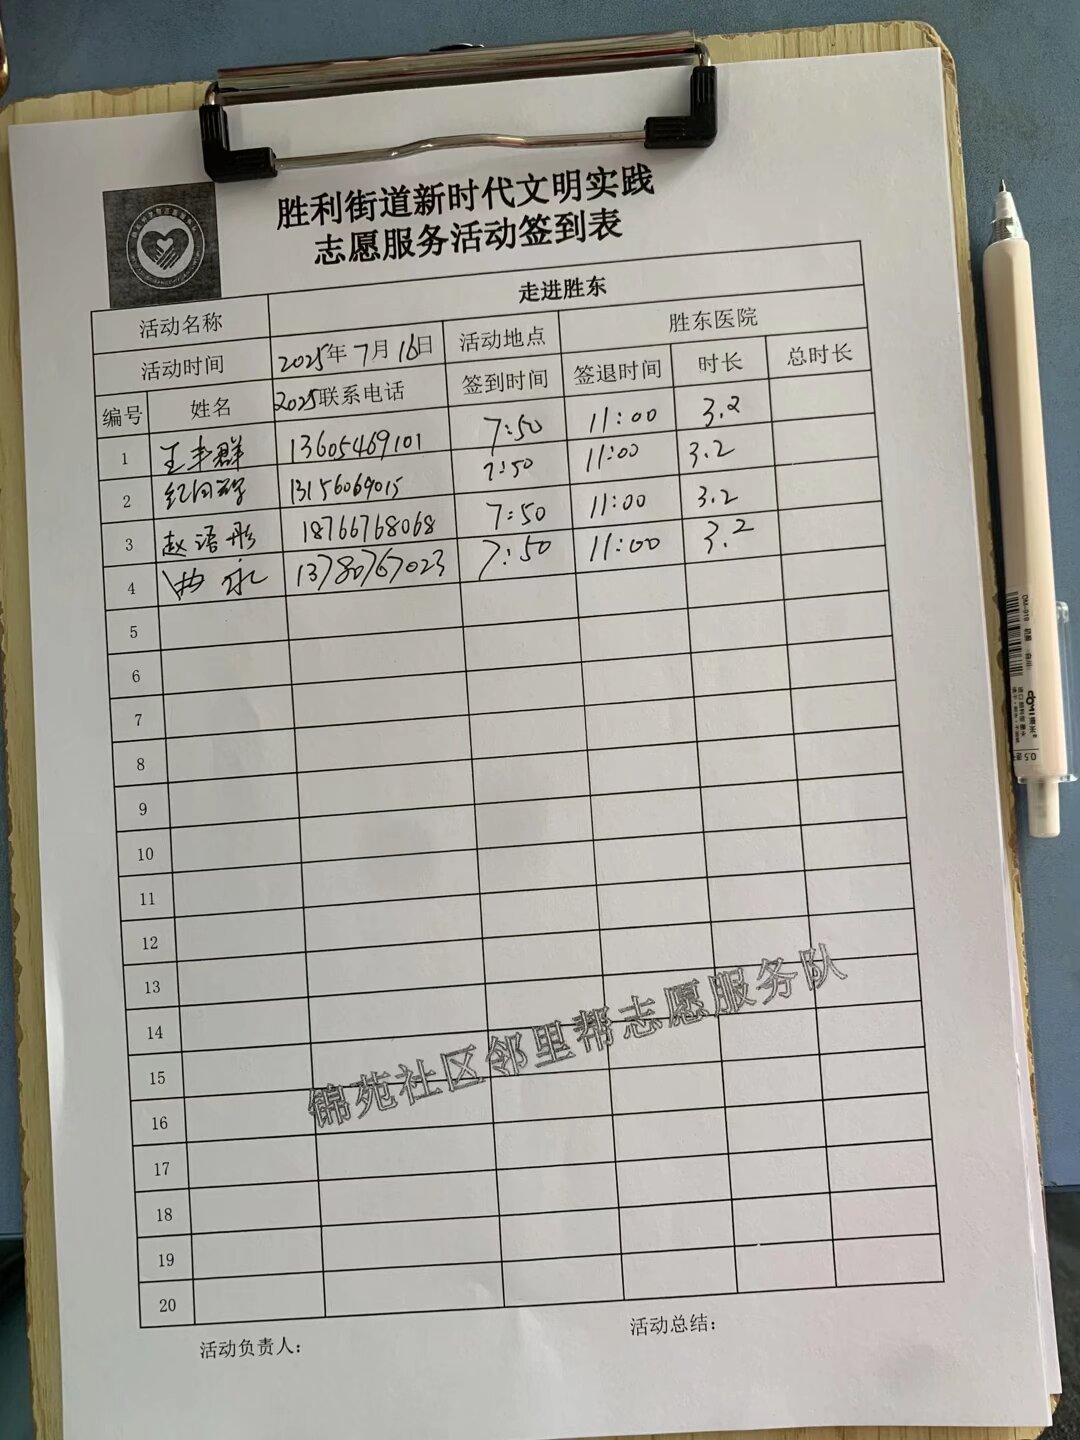 胜利街道新时代文明实践
志愿服务活动签到表
活动名称 走进胜东
活动时间 2025年7月16日 活动地点 胜东医院
编号 姓名 2025联系电话 签到时间 签退时间 时长 总时长
1 王丰群 13605469101 7:50 11:00 3.2
2 13156069015 7:50 11:00 3.2
3 赵语彤 18766768068 7:50 11:00 3.2
4 曲永 13780767023 7:50 11:00 3.2
5
6
7
8
9
10
11
12
13
14
15
16
17
18
19
20
锦苑社区邻里帮志愿服务队
活动负责人：
活动总结：